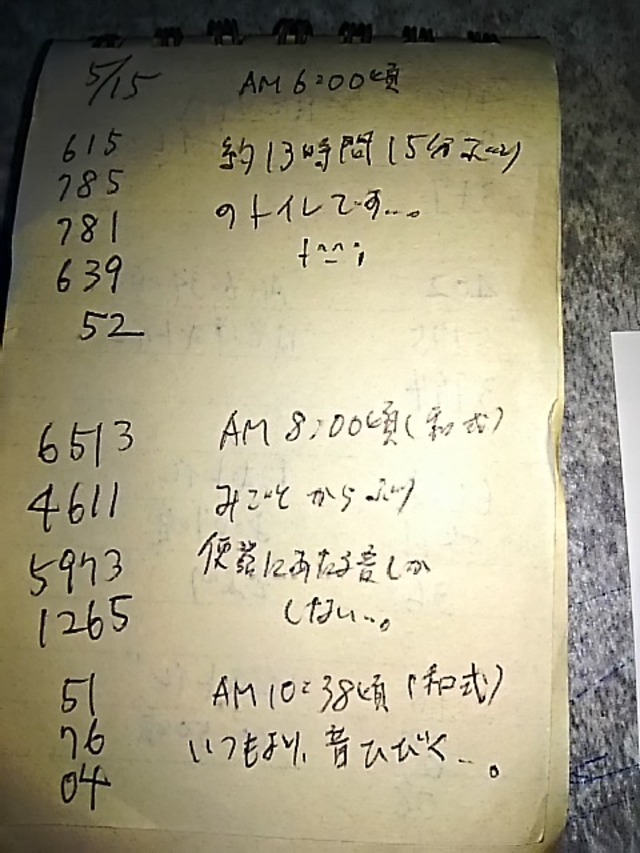 5/15 AM 6:00頃
615 約13時間15分ぶり
785
781 のトイレです…。
639
52
6513 AM 8:00頃(和式)
4611 みごと から
5973 便器にあたる音しか
1265 しない…。
51 AM10:38頃(和式)
76 いつもより、音ひびく…。
04